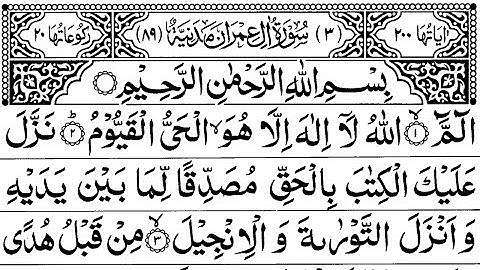 اٰیاتُهَا ٢٠٠ (٣) سُوْرَةُ اٰلِ عِمْرٰنَ مَدَنِيَّةٌ (٨٩) رُكُوْعَاتُهَا ٢٠
بِسْمِ اللّٰهِ الرَّحْمٰنِ الرَّحِيْمِ
الٓمّٓ ۙ﴿١﴾ اللّٰهُ لَاۤ اِلٰهَ اِلَّا هُوَ ۙ الْحَيُّ الْقَيُّوْمُ ؕ﴿٢﴾ نَزَّلَ
عَلَيْكَ الْكِتٰبَ بِالْحَقِّ مُصَدِّقًا لِّمَا بَيْنَ يَدَيْهِ
وَ اَنْزَلَ التَّوْرٰىةَ وَ الْاِنْجِيْلَ ۙ﴿٣﴾ مِنْ قَبْلُ هُدًى